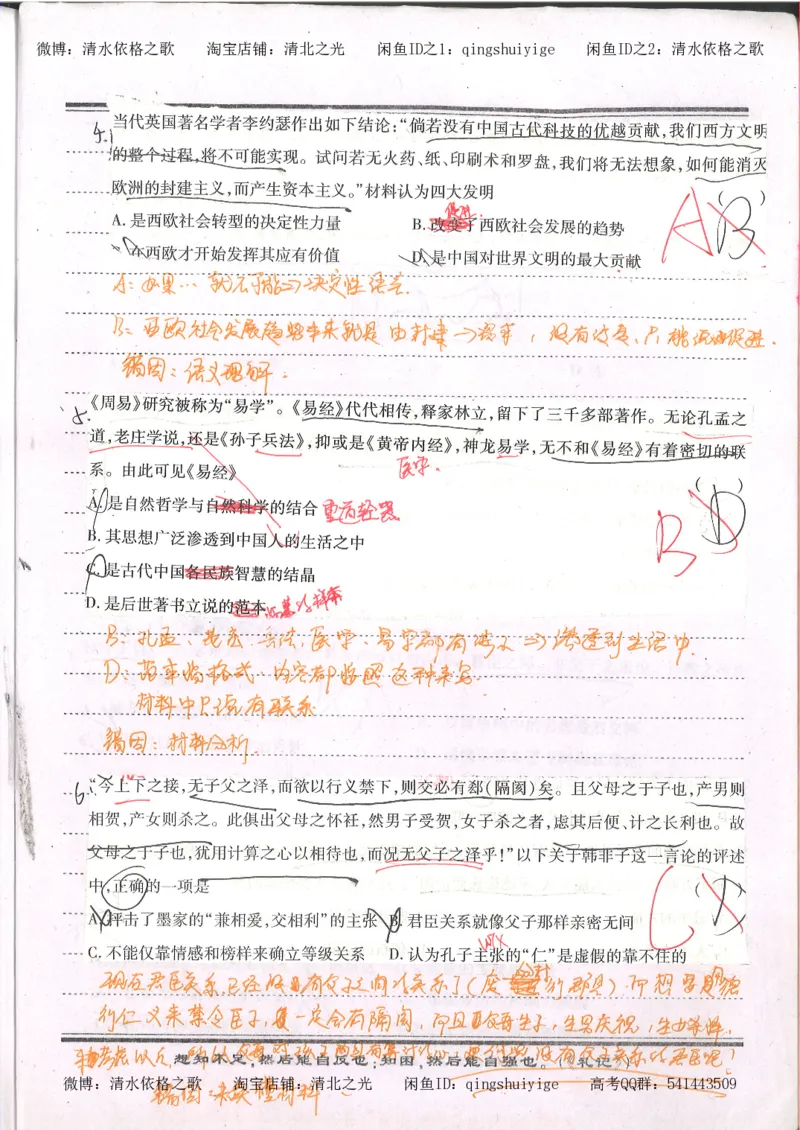 微博：清水依格之歌 淘宝店铺：清北之光 闲鱼ID之1：qingshuiyige 闲鱼ID之2：清水依格之歌
当代英国著名学者李约瑟作出如下结论：“倘若没有中国古代科技的优越贡献，我们西方文明
的整个过程，将不可能实现。试问若无火药、纸、印刷术和罗盘，我们将无法想象，如何能消灭
欧洲的封建主义，而产生资本主义。”材料认为四大发明 ( )
A. 是西欧社会转型的决定性力量 B. 改变了西欧社会发展的趋势
促进
A B
C. 在西欧才开始发挥其应有价值 D. 是中国对世界文明的最大贡献
A：如果… 就不能⇒决定性语气.
B：西欧社会发展趋势本来就是由封建→资本，没有改变、只能说成促进.
错因：语义理解.
5.
《周易》研究被称为“易学”。《易经》代代相传，释家林立，留下了三千多部著作。无论孔孟之
道，老庄学说，还是《孙子兵法》，抑或是《黄帝内经》，神龙易学，无不和《易经》有着密切的联
医学.
系。由此可见《易经》 ( )
A. 是自然哲学与自然科学的结合 重道轻器
B D
B. 其思想广泛渗透到中国人的生活之中
C. 是古代中国各民族智慧的结晶
D. 是后世著书立说的范本
B：孔孟、老庄、兵法、医学、易学都有涉及⇒渗透到生活中.
D：范本指格式、内容都按照这种来写.
材料中只说有联系
错因：材料分析.
6.
“今上下之接，无子父之泽，而欲以行义禁下，则交必有郄(隔阂)矣。且父母之于子也，产男则
相贺，产女则杀之。此俱出父母之怀衽，然男子受贺，女子杀之者，虑其后便、计之长利也。故
父母之于子也，犹用计算之心以相待也，而况无父子之泽乎！”以下关于韩非子这一言论的评述
中，正确的一项是 ( )
C D
A. 抨击了墨家的“兼相爱，交相利”的主张 B. 君臣关系就像父子那样亲密无间
C. 不能仅靠情感和榜样来确立等级关系 D. 认为孔子主张的“仁”是虚假的靠不住的
现在君臣关系已经没有父子之间的关系了(废分封行郡县).而想要用
行仁义来禁令臣子，一定会有隔阂，而且父母生子，生男庆祝，生女
想知不足，然后能自反也；知困，然后能自强也。(《礼记》)
微博：清水依格之歌 淘宝店铺：清北之光 闲鱼ID：qingshuiyige 高考QQ群：541443509
错因：未读懂材料